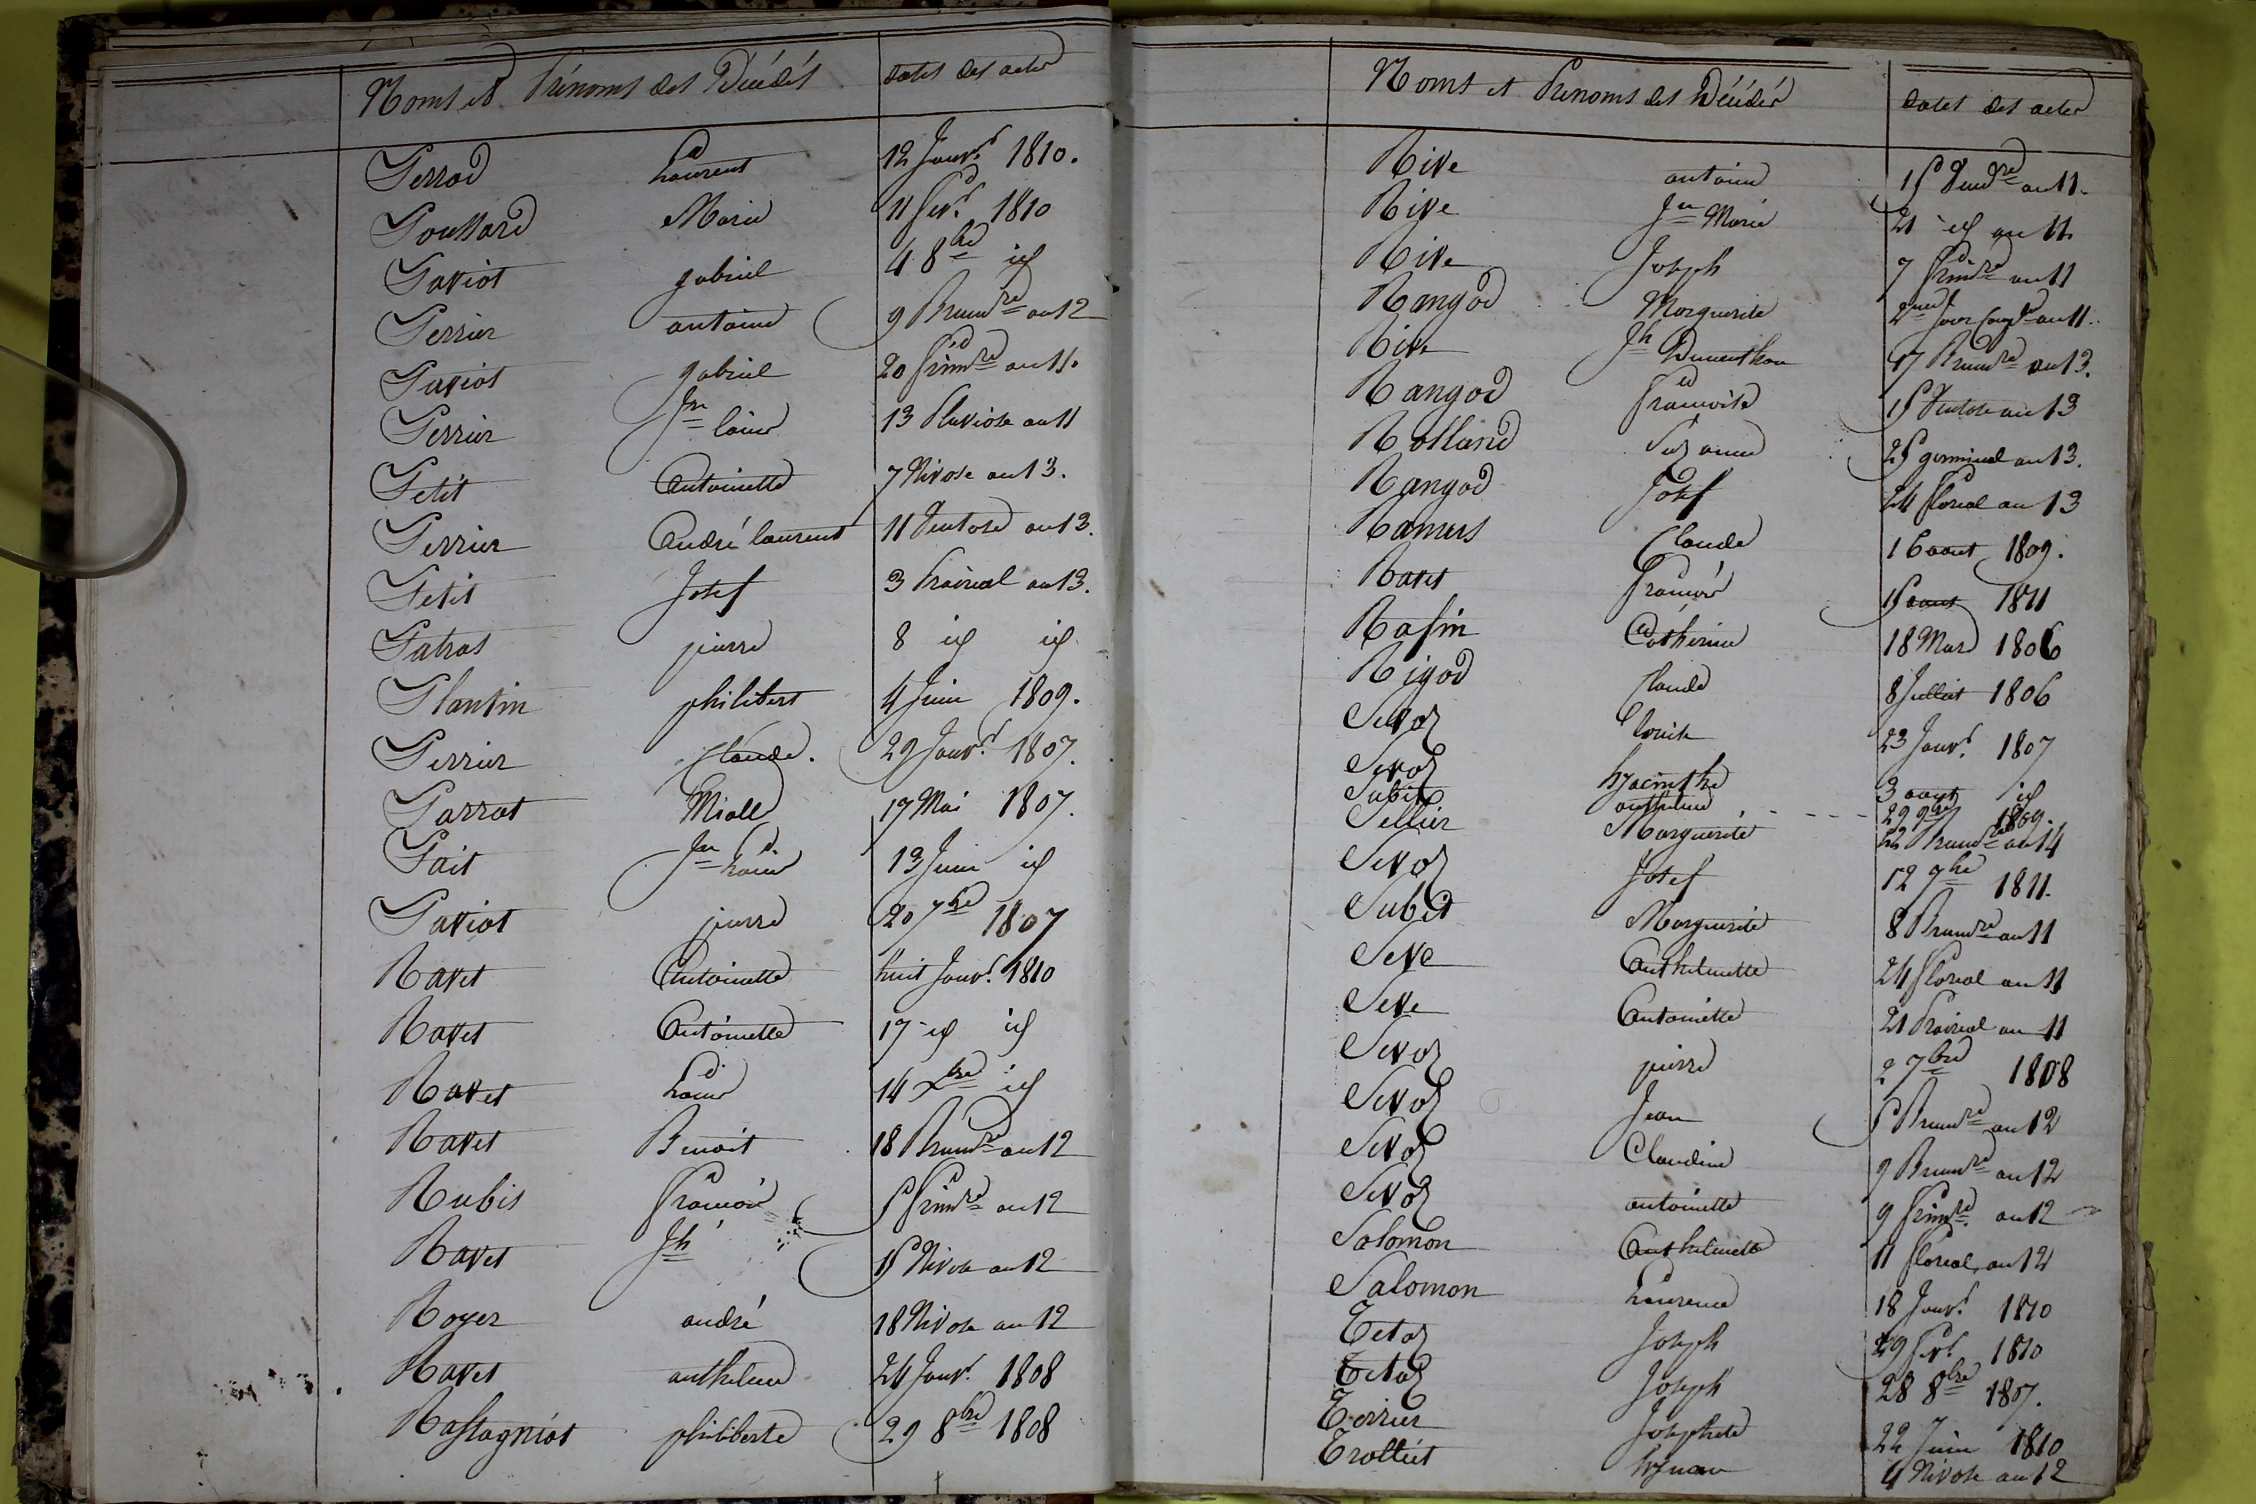 Noms et Prénoms des Décédés dates des actes
Perrod Laurent 12 Janvr. 1810.
Poussard Marie 11 Fevr. 1810
Paviot gabriel 4 8bre id
Perrier antoine 9 Brumre an 12
Paviot gabriel 20 frimre an 11.
Perrier Jn louis 13 Pluviose an 11
Petit Antoinette 7 Nivose an 13.
Perrier André laurent 11 Ventose an 13.
Petit Josef 3 Prairial an 13.
Patras pierre 8 id id
Plantin philibert 4 Juin 1809.
Perrier Claude. 29 Janvr. 1807.
Parrat 17 Mai 1807.
Pait Jn Louis 13 Juin id
Paviot pierre 20 7bre 1807
Ravet Antoinette huit Janvr. 1810
Ravet Antoinette 17 id id
Ravet Louis 14 Xbre id
Ravet Benoit 18 Brumre an 12
Rubis François 5 frimre an 12
Ravet Jh 15 Nivose an 12
Royer andré 18 Nivose an 12
Ravet anthelme 24 Janvr. 1808
Rastagniot philiberte 29 8bre 1808
Noms et Prenoms des Décédés dates des actes
Rive antoine 15 Vendre an 11.
Rive Jn Marie 21 id an 11.
Rive Joseph 7 frimre an 11
Rangod Marguerite 2me Jour Compre an 11.
Rive Jh 17 Brumre an 13.
Rangod Françoise 15 Ventose an 13
Rolland Suzanne 25 germinal an 13.
Rangod Josef 24 floreal an 13
Ramers Claude 16 aout 1809.
Ravet François 15 aout 1811
Rafin Catherine 18 Mars 1806
Rigod Claude 8 Juillet 1806
Sevoz Louise 23 Janvr. 1807
Sevoz hyacinthe 3 aout id
Subit anthelme 29 9bre 1809.
Sellier Marguerite 22 Brumre an 14
Sevoz Josef 12 9bre 1811.
Subit Marguerite 8 Brumre an 11
Seve Anthelmette 24 floreal an 11
Seve Antoinette 21 Prairial an 11
Sevoz pierre 2 7bre 1808
Sevoz Jean 5 Brumre an 12
Sevoz Claudine 9 Brumre an 12
Sevoz antoinette 9 frimre an 12
Salomon Anthelmette 11 floreal, an 12
Salomon Laurence 18 Janvr. 1810
Tetaz Joseph 29 Fevr. 1810
Tetaz Joseph 28 8bre 1807.
Terrier Josephete 22 Juin 1810
Trolliet 4 Nivose an 12